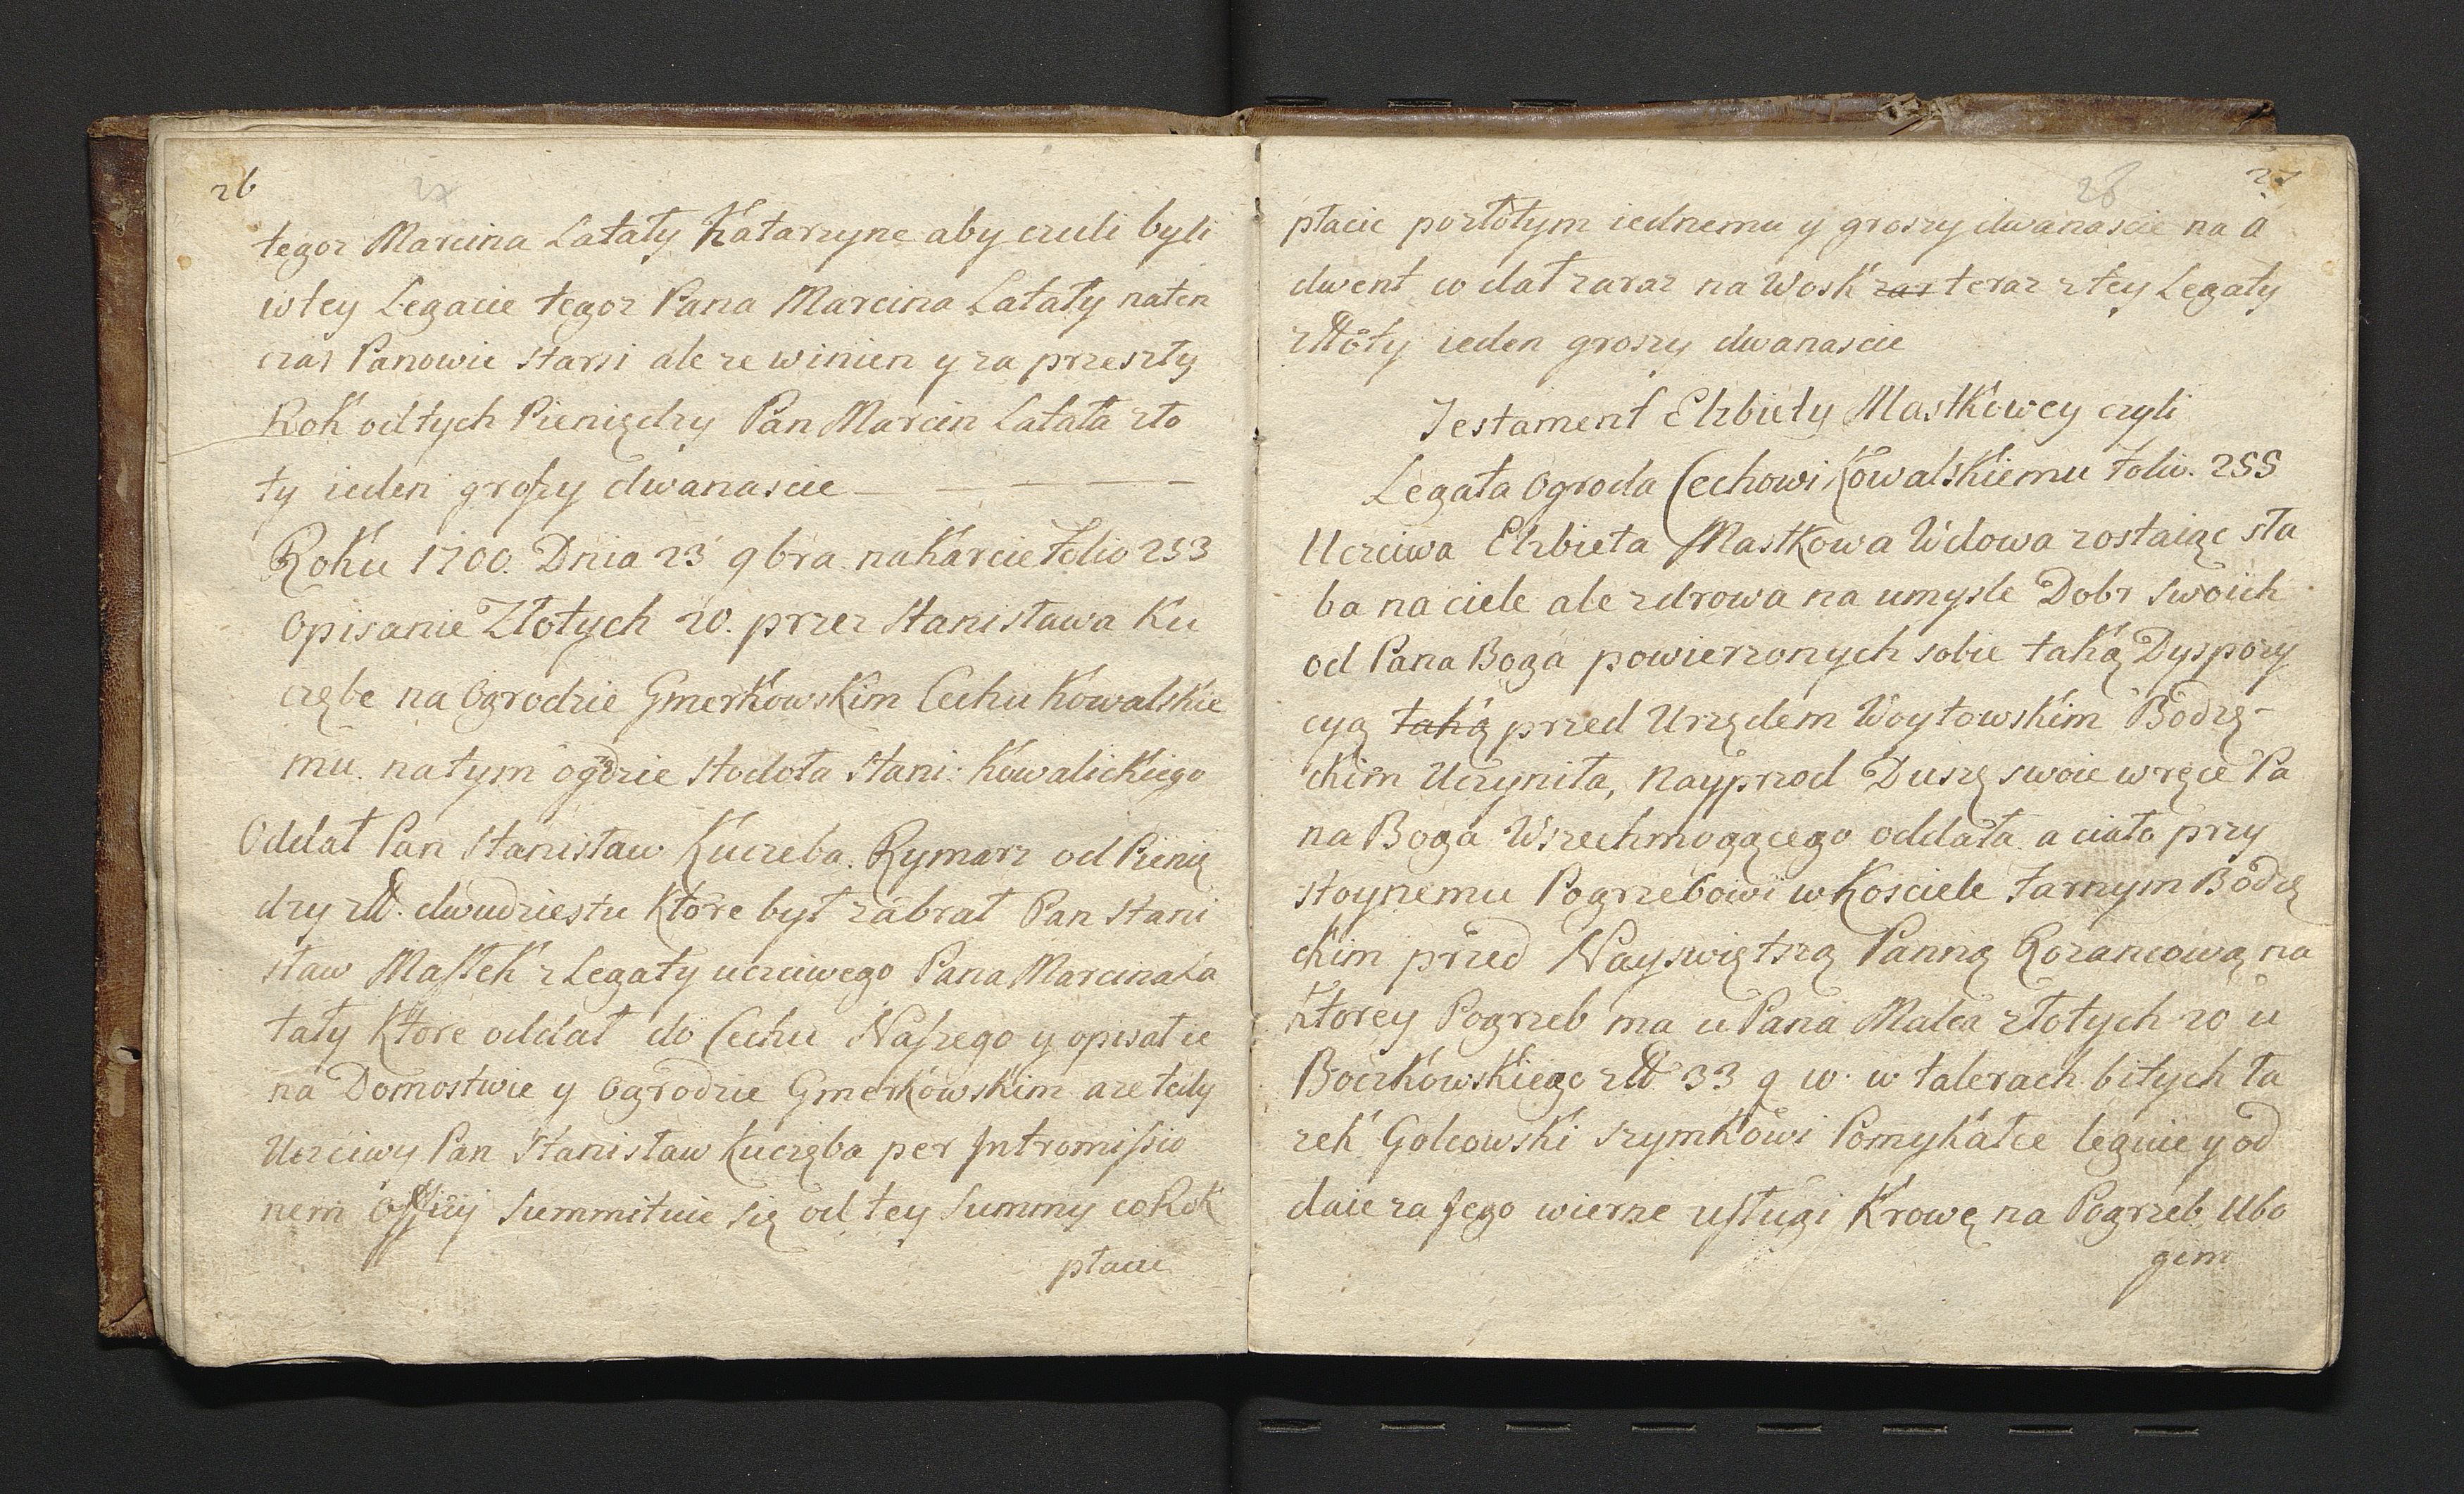 26
tegoz Marcina Latały Katarzynę aby czuli byli
w tey Legacie tegoz Pana Marcina Latały naten
czas Panowie starsi ale ze winien y za przeszły
Rok od tych Pieniędzy Pan Marcin Latała zło
ty ieden groszy dwanascie — — — —
Roku 1700. Dnia 23 9bra na karcie Folio 253
Opisanie Złotych 20. przez Stanisława Ku
czębe na Ogrodzie Gmerkowskim Cechu Kowalskie
mu. na tym ogdzie stodoła Stani: Kowalickiego
Oddał Pan Stanisław Kuczeba. Rymarz od Pienię
dzy zł. dwudziestu ktore był zabrał Pan Stani
sław Mastek z Legaty uczciwego Pana Marcina La
tały ktore oddał do Cechu Naszego y opisał ie
na Domostwie y Ogrodzie Gmerkowskim aze tedy
Uczciwy Pan Stanisław Kuczęba per Intromissio
nem Officij summituie się od tey Summy co Rok
płacic
27
28
płacic po złotym iednemu y groszy dwanascie na a
dwent w dał zaraz na Wosk zar teraz z tey Legaty
złoty ieden groszy dwanascie
Testament Elzbiety Mastkowey czyli
Legata Ogroda Cechowi Kowalskiemu Folio. 255
Uczciwa Elzbieta Mastkowa Wdowa zostaiąc sła
ba na ciele ale zdrowa na umysle Dobr swoich
od Pana Boga powierzonych sobie taką Dyspozy
cyą taką przed Urzędem Woytowskim Bodzę-
ckim Uczyniła, Nayprzod Duszę swoie w ręce Pa
na Boga Wszechmogącego oddała. a ciało przy
stoynemu Pogrzebowi w Kosciele Farnym Bodzę
ckim przed Nayswiętszą Panną Rozancową na
ktorey Pogrzeb ma u Pana Malca złotych 20 u
Boczkowskiego zł 33 g w. w talerach bitych ta
zek Golcowski Szymkowi Pomykałce leguie y od
daie za Jego wierne usługi Krowę na Pogrzeb Ubo
giem